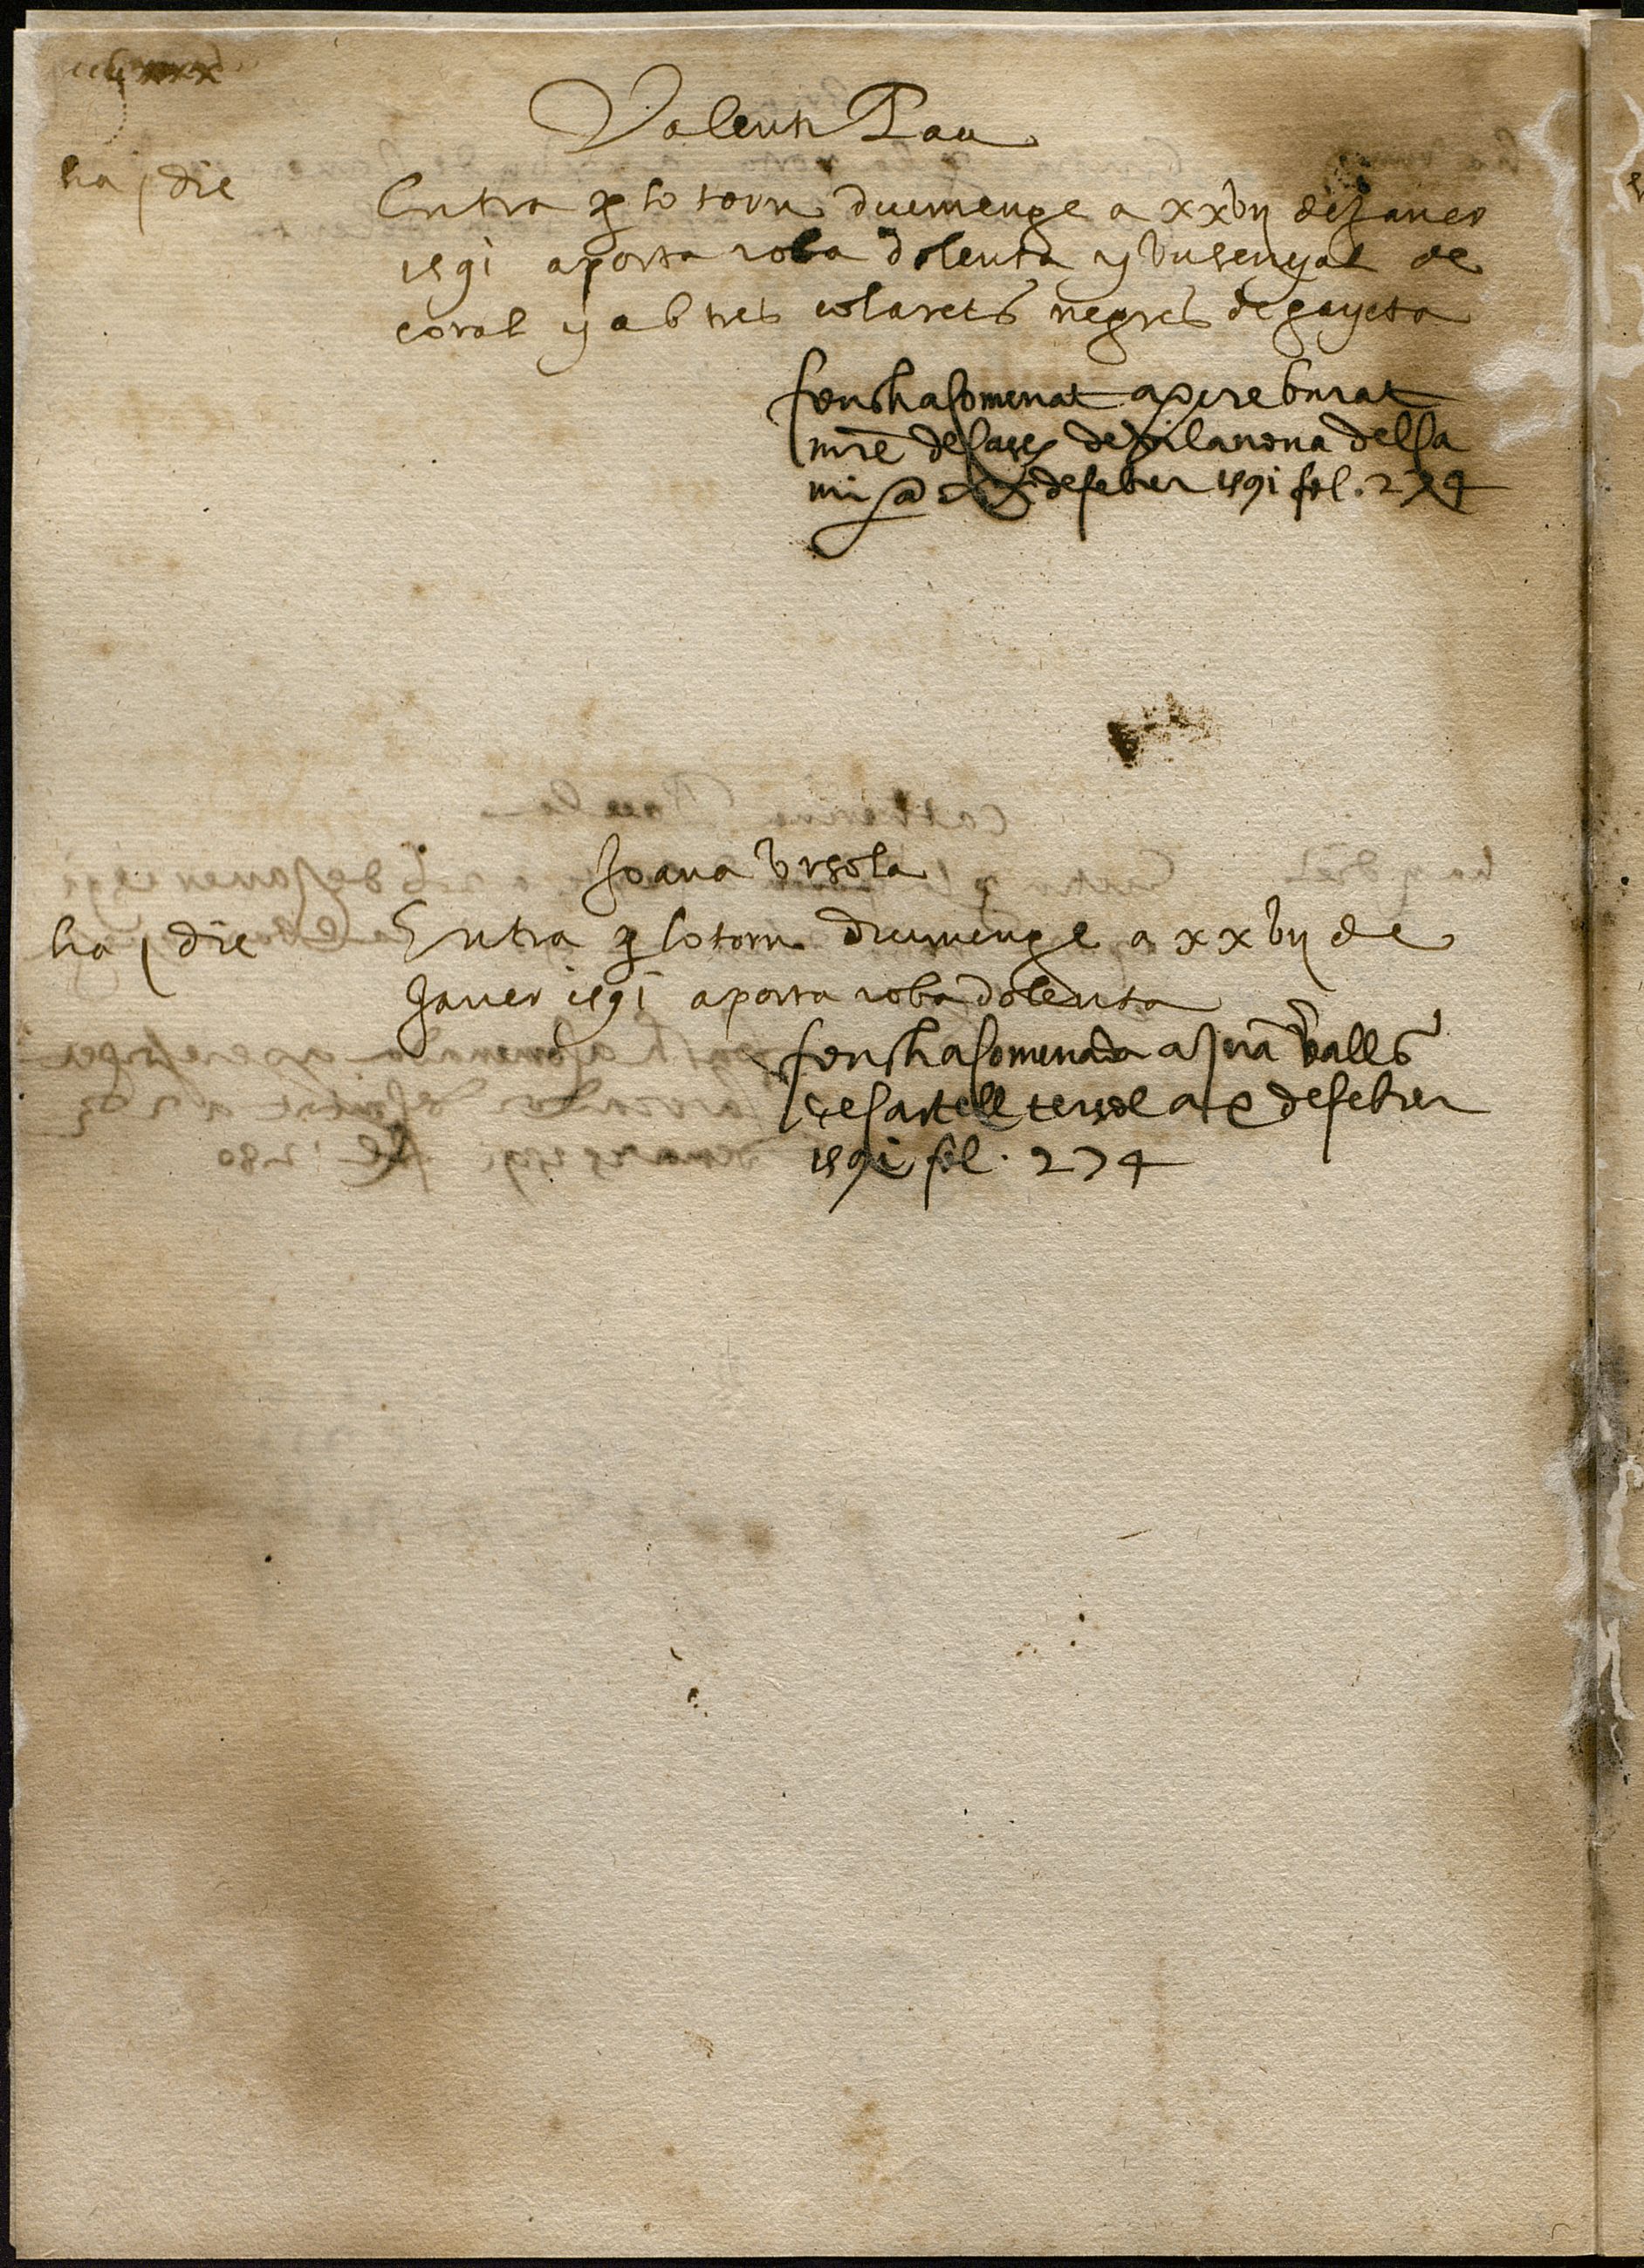 Valenti Pau
ha j die
Entra p lo torn diumenge a xxvij de Janer
1591 aporta roba dolenta y un senyal de
coral y ab tres colarets negres de gayeta
fonch acomenat a pere burat
mre de cases de vilanova del ca
mi a x de febrer 1591 fol. 274
Joana Ursola
ha j die
Entra p lo torn diumenge a xxvij de
Janer 1591 aporta roba dolenta
fonch acomenada a Juã valls
de castell tersol a x de febrer
1591 fol. 274